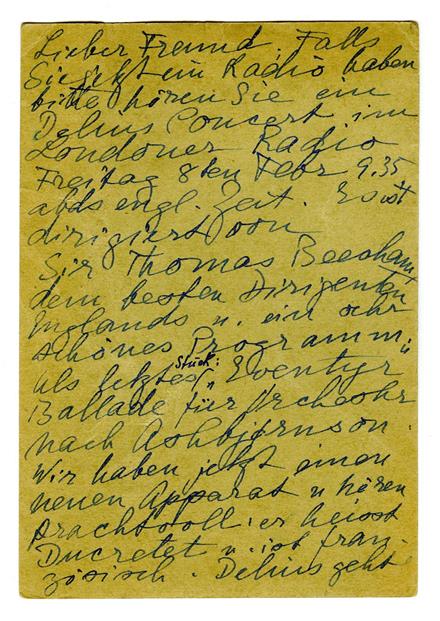 Lieber Freund, Falls
Sie jetzt ein Radio haben
bitte hören Sie ein
Delius Concert im
Londoner Radio
Freitag 8ten Febr 9.35
abds engl. Zeit. Es ist
dirigiert von
Sir Thomas Beecham
dem besten Dirigenten
Englands u. ein sehr
schönes Programm;
als letztes Stück: „Eventyr"
Ballade für Orchestr
nach Ashbjørnson.
Wir haben jetzt einen
neuen Apparat u hören
prachtvoll: er heisst
Ducretet u. ist fran-
zösisch. Delius geht